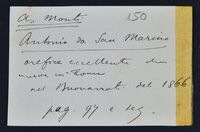 A. Monti 150
Antonio da San Marino
orefice eccellente che
nuove in Roma
nel Buonarroti del 1866
pag. 97 e seg.